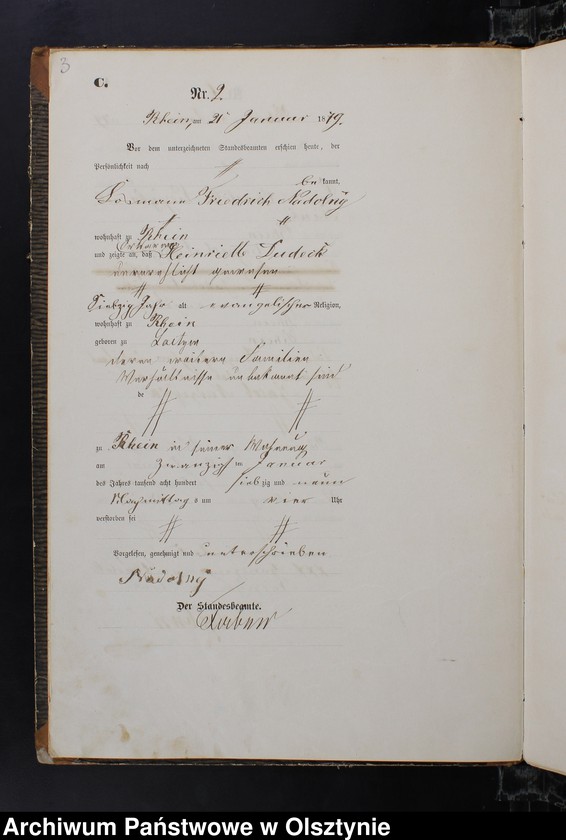 3
C.
Nr. 2.
Rhein, am 21 Januar 1879.
Vor dem unterzeichneten Standesbeamten erschien heute, der
Persönlichkeit nach
bekannt,
Losmann Friedrich Nadolny
wohnhaft zu Rhein
und zeigte an, daß Heinriette Ludeck
verehelicht gewesene
Siebzig Jahr alt evangelischer Religion,
wohnhaft zu Rhein
geboren zu
deren weitere Familien
Verhältnisse unbekannt sind
de
zu Rhein in seiner Wohnung
am zwanzigsten Januar
des Jahres tausend acht hundert siebzig und neun
Nachmittags um vier Uhr
verstorben sei
Vorgelesen, genehmigt und unterschrieben
Nadolny
Der Standesbeamte.
Archiwum Państwowe w Olsztynie